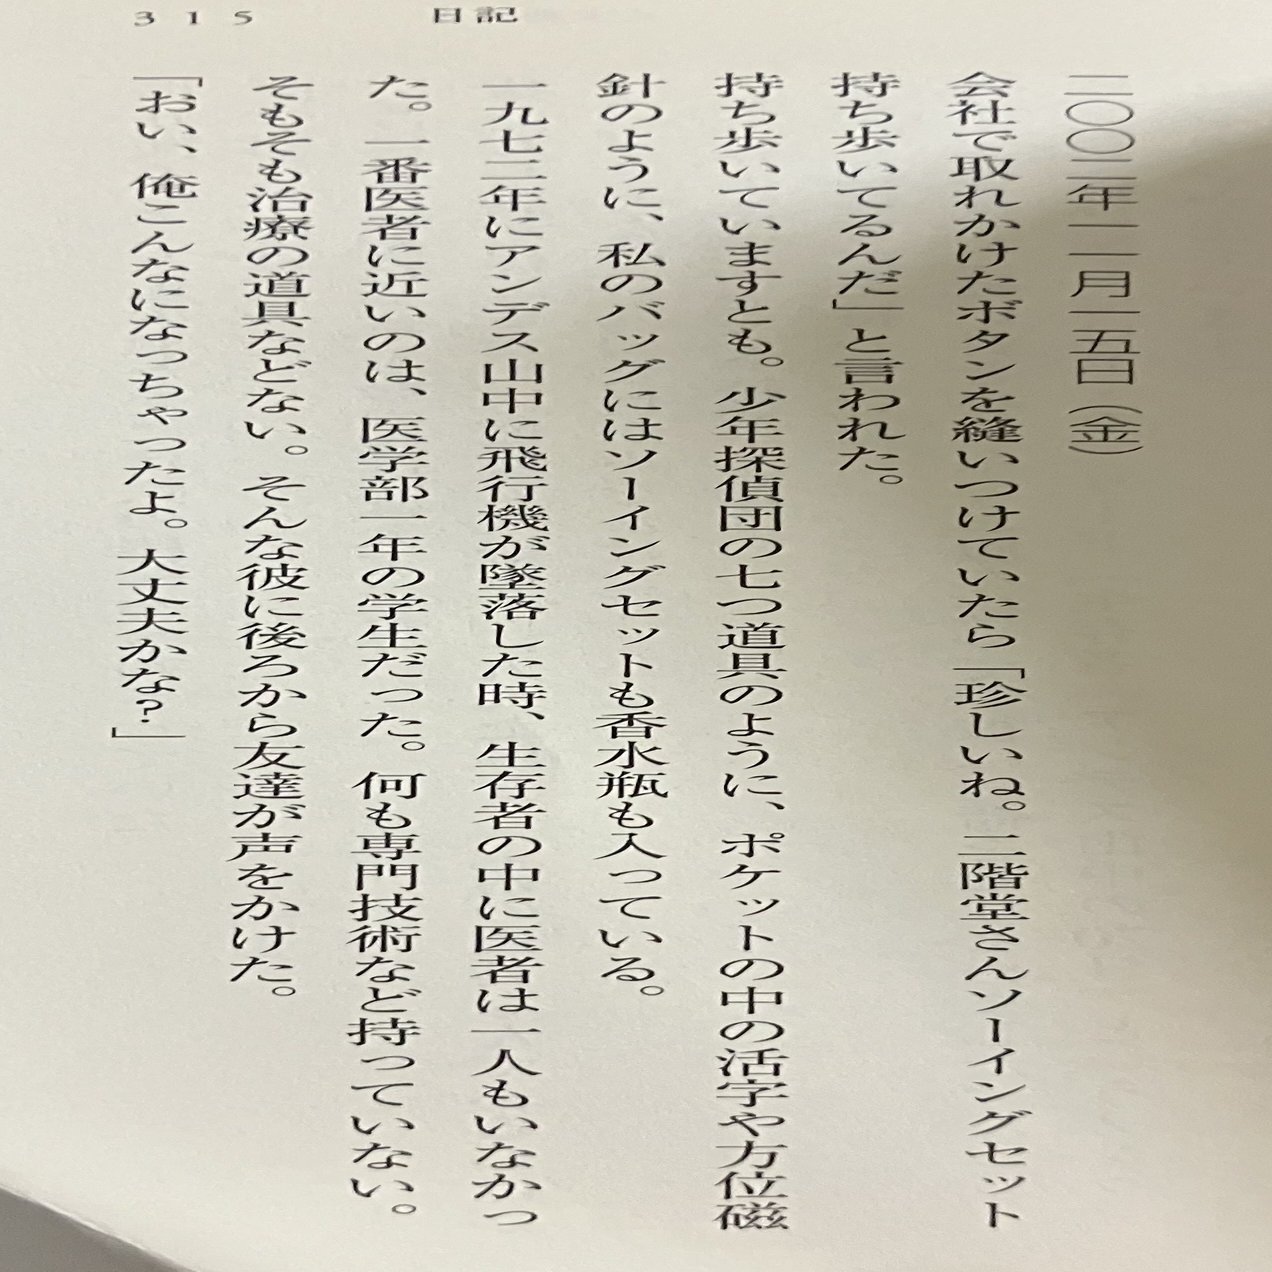 315 日記
二〇〇二年一一月一五日(金)
会社で取れかけたボタンを縫いつけていたら「珍しいね。二階堂さんソーイングセット
持ち歩いてるんだ」と言われた。
持ち歩いていますとも。少年探偵団の七つ道具のように、ポケットの中の活字や方位磁
針のように、私のバッグにはソーイングセットも香水瓶も入っている。
一九七二年にアンデス山中に飛行機が墜落した時、生存者の中に医者は一人もいなかっ
た。一番医者に近いのは、医学部一年の学生だった。何も専門技術など持っていない。
そもそも治療の道具などない。そんな彼に後ろから友達が声をかけた。
「おい、俺こんなになっちゃったよ。大丈夫かな?」